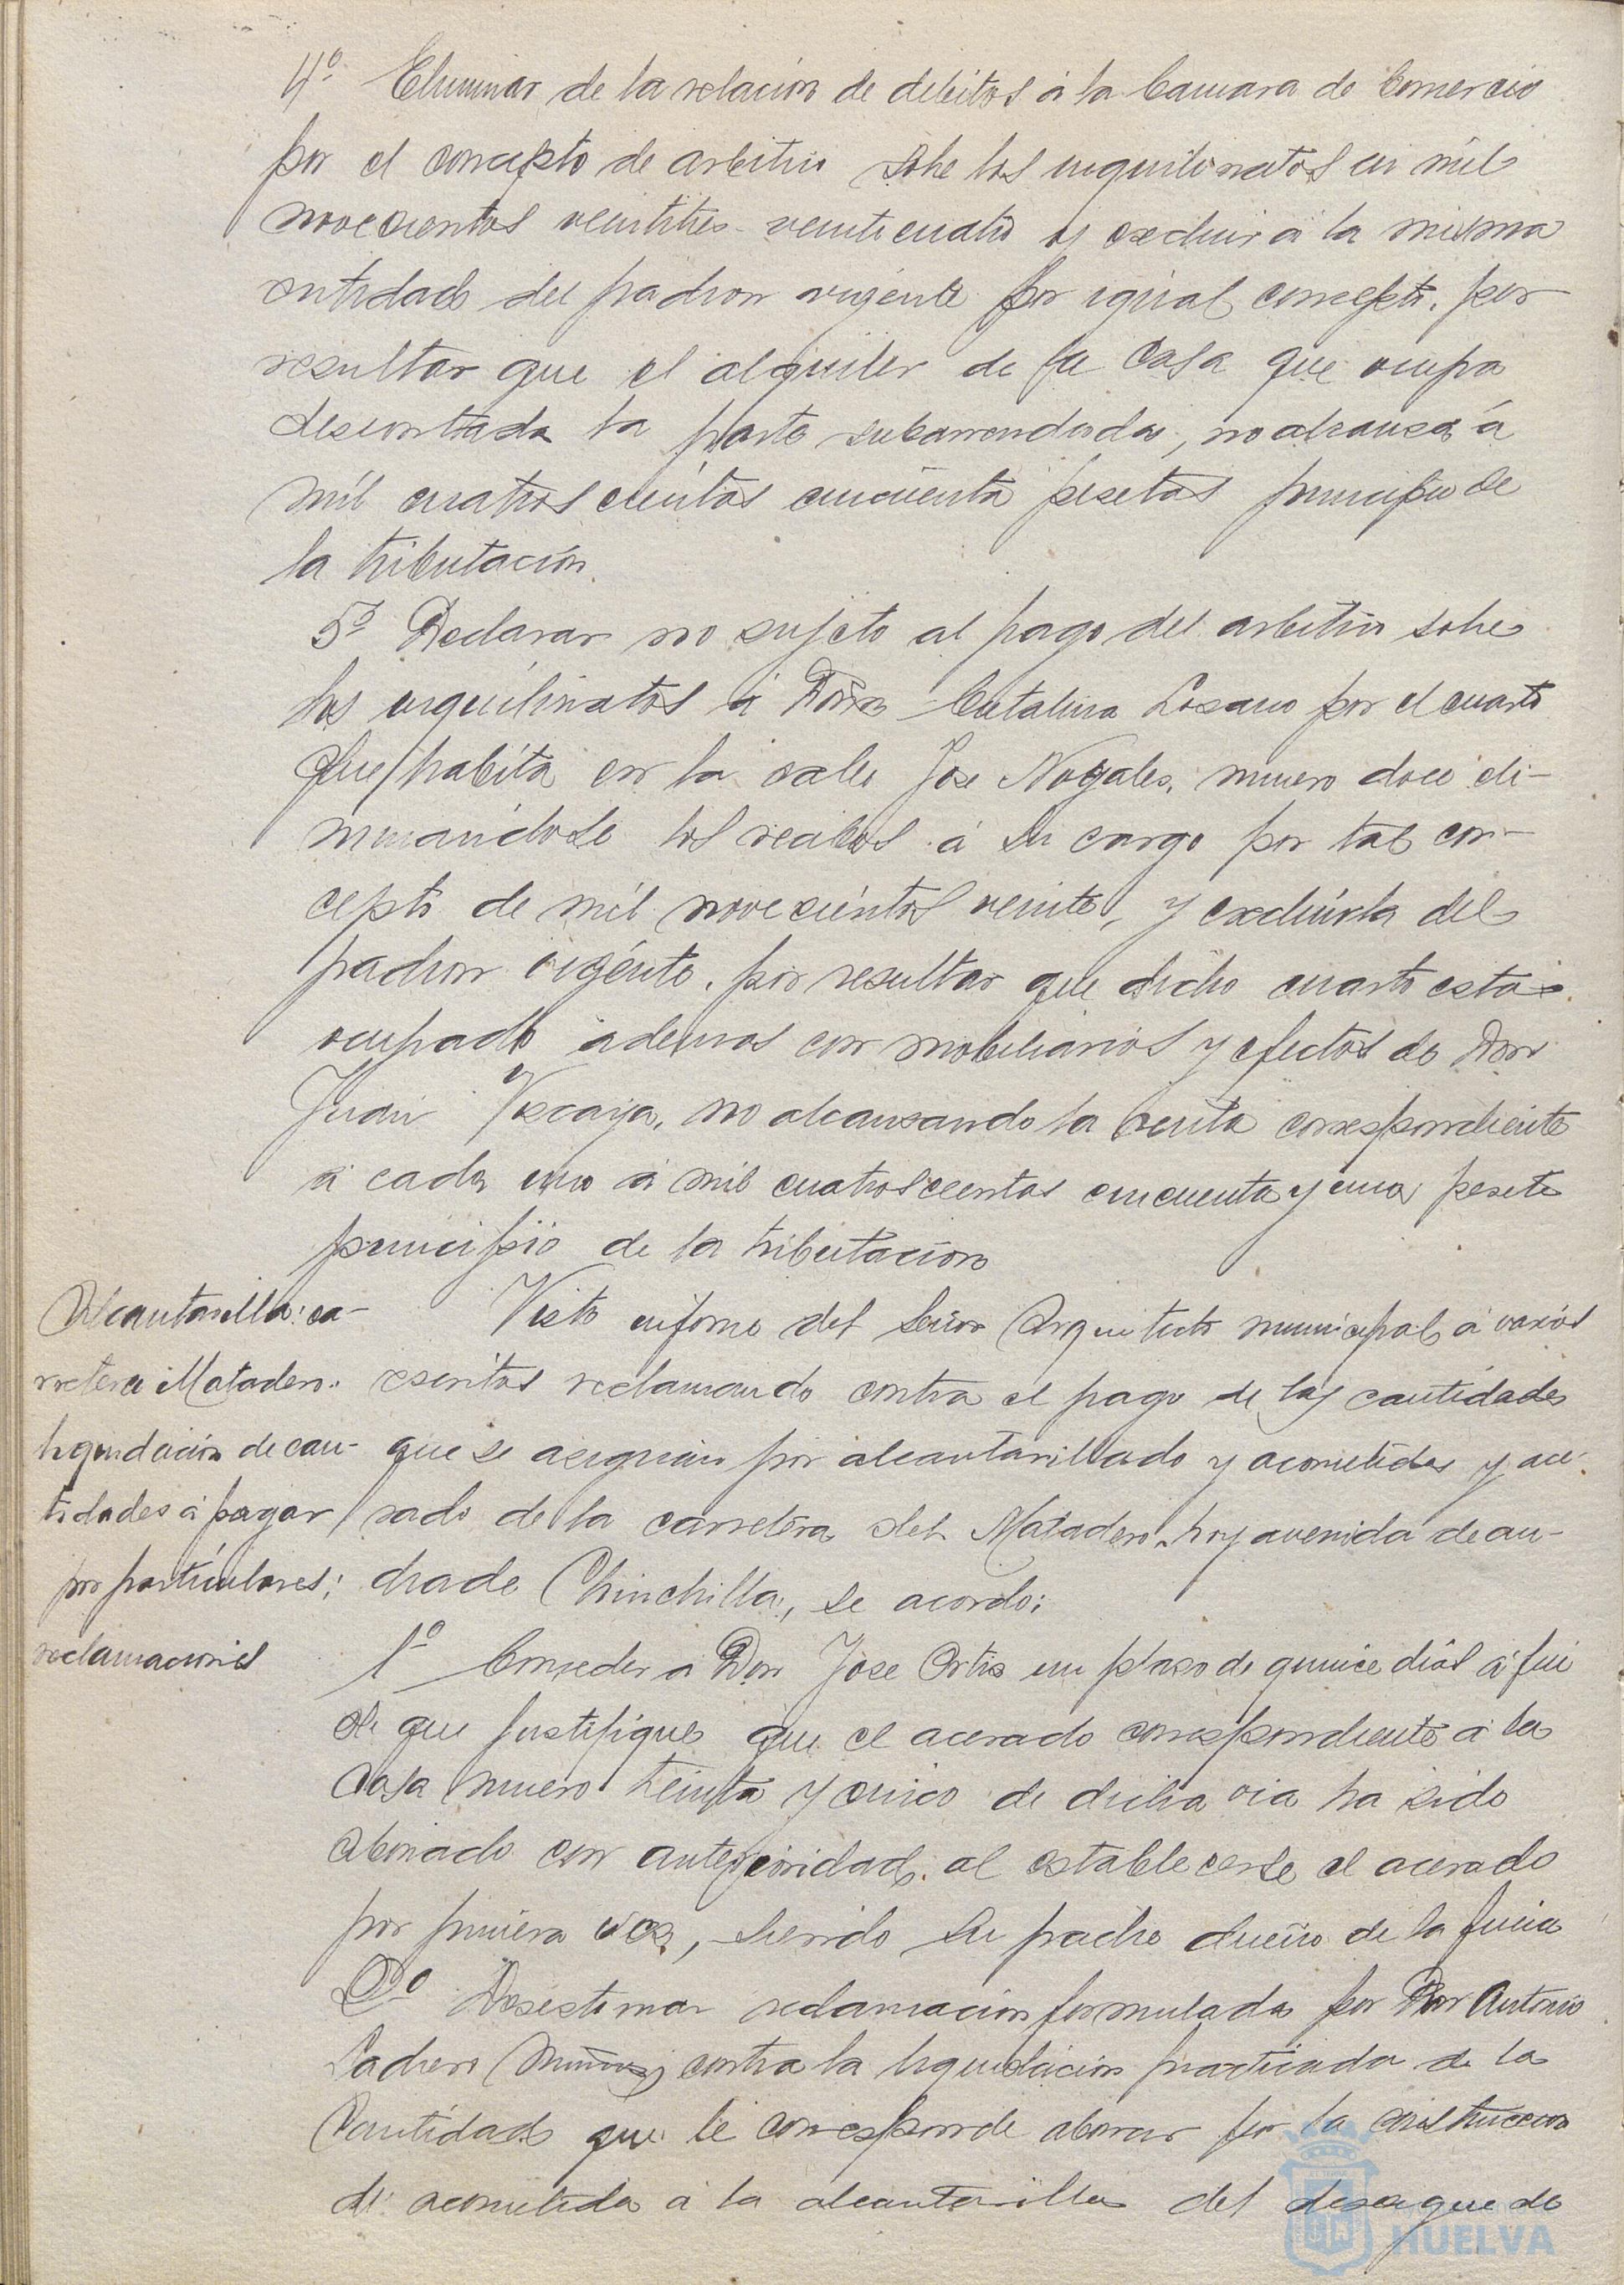 4º Eliminar de la relación de debitos á la Camara de Comercio
por el concepto de arbitrio sobre los inquilinatos en mil
novecientos veintitres-veinticuatro y excluir á la misma
entidad del padron vigente por igual concepto, por
resultar que el alquiler de la casa que ocupa
descontada la parte subarrendada, no alcanza á
mil cuatroscientos cincuenta pesetas principio de
la tributación.
5º Declarar no sujeto al pago del arbitrio sobre
los inquilinatos á Doña Catalina Lozano por el cuarto
que habita en la calle Jose Nogales, numero doce eli-
minandose los recibos á su cargo por tal con-
cepto de mil novecientos veinte, y excluirla del
padron vigente, por resultar que dicho cuarto está
ocupado ademas con mobiliarios y efectos de Don
Juan Viscaya, no alcanzando la renta correspondiente
á cada uno á mil cuatroscientas cincuenta y una peseta
principio de la tributacion
Alcantarilla: ca-
rretera Matadero:
liquidación de can-
tidades á pagar
por particulares;
reclamaciones
Visto informe del Señor Arquitecto municipal á varios
escritos reclamando contra el pago de las cantidades
que se asignan por alcantarillado y acometidas y ace-
rado de la carretera del Matadero, hoy avenida de an-
drade Chinchilla, se acordo:
1º Conceder a Don Jose Ortiz un plazo de quince dias á fin
de que justifique que el acerado correspondiente á la
casa numero treinta y cinco de dicha via ha sido
abonado con anterioridad, al establecerse el acerado
por primera vez, siendo su padre dueño de la finca
2º Desestimar reclamacion formulada por Don Antonio
Ladrero Muñoz, contra la liquidación practicada de la
Cantidad que le corresponde abonar por la construccion
de acometida á la alcantarilla del desague de
HUELVA